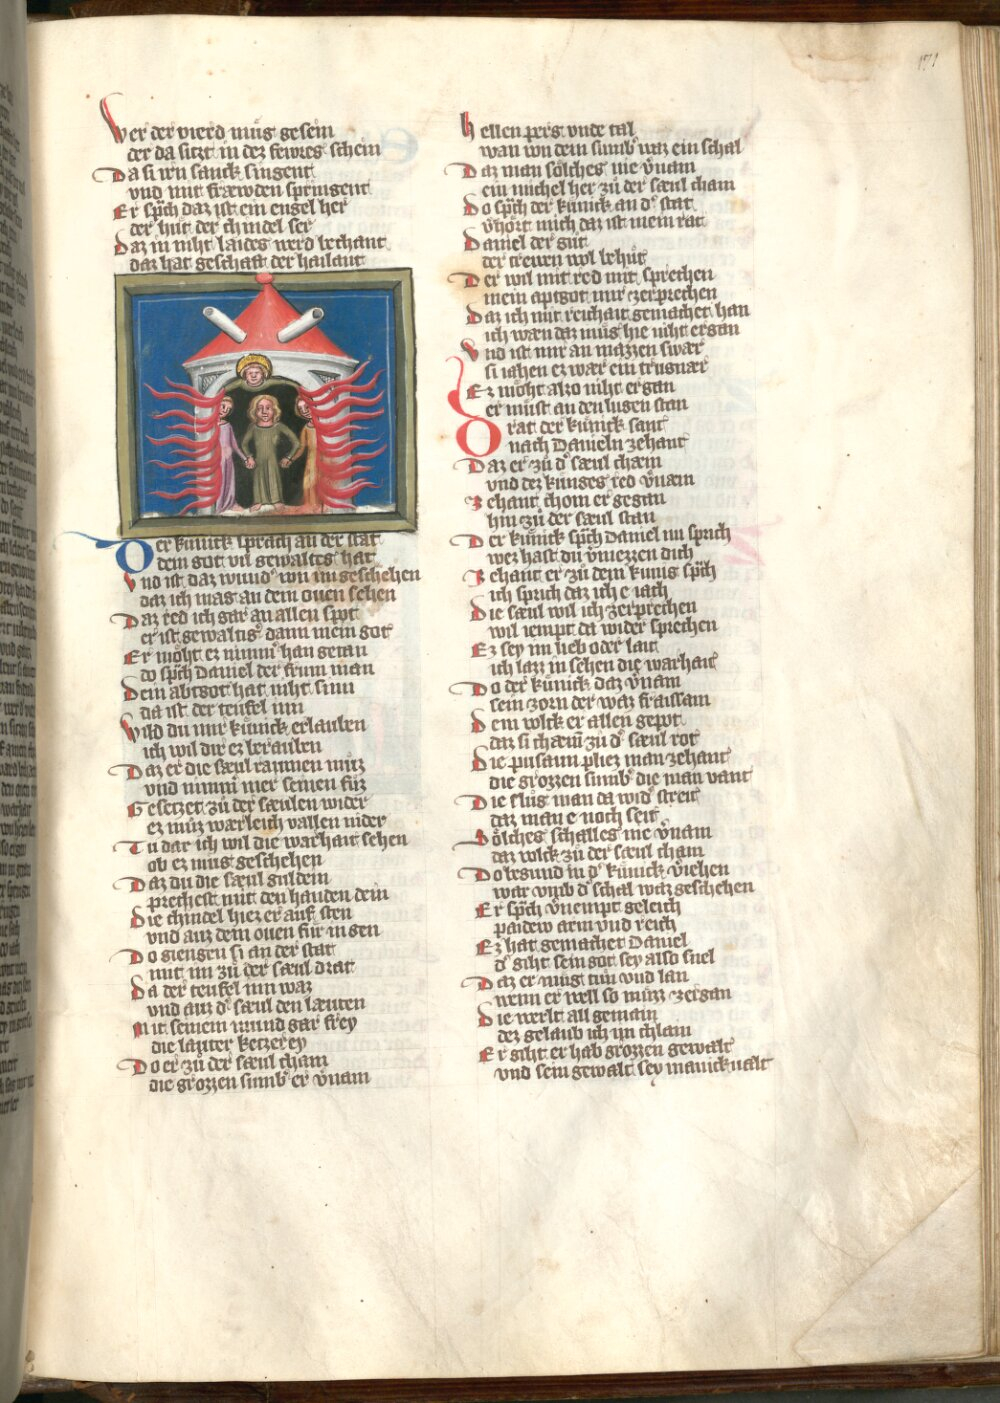 171
Wer der vierd müs gesein
der da sitzt in dez fewres schein
Da si wn sanck singent
vnd mit fræwden springent
Er sp̄ch daz ist ein engel her
der hüt der chindel ser
Daz in niht laides werd bechant
daz hat geschaft der hailant
Der künick sprach an der stat
dem got vil gewaltes hat
Vnd ist daz wund' von im geschehen
daz ich mag an dem ouen sehen
Daz red ich gar an allen spot
er ist gewaltig' dann mein got
Er möht ez nimm' han getan
do sp̄ch Daniel der frum man
Dein abtgot hat niht sinn
da ist der teufel inn
Wild du mir künick erlauben
ich wil dir ez berauben
Daz er die sæul raumen müz
vnd nimm' mer seinen füz
Gesetzet zü der sæulen wider
ez müz wærleich vallen nider
Tu dar ich wil die warhait sehen
ob ez mug geschehen
Daz du die sæul guldein
prechest mit den handen dein
Die chindel hiez er auf sten
vnd auz dem ouen für in gen
Do giengen si an der stat
mit im zü der sæul drat
Da der teufel inn waz
vnd auz d' sæul den læuten
Mit seinem mund gar frey
die lauter ketzerey
Do er zü der sæul cham
die grozzen stimb er v'nam
Hellen pers vnde tal
wan von dem stimb waz ein schal
Daz man sölches nie v'nam
ein michel her zü der sæul cham
Do sp̄ch der künick an d' stat
v'hört mich daz ist mein rat
Daniel der güt
der trewen wol behüt
Der wil mit red mit sprechen
mein aptgot mir zerprechen
Daz ich mit reichait gemachet han
ich wæn daz müg hie niht ergan
Vnd ist mir an mazzen swær
si iahen ez wær ein trugnær
Ez möht also niht ergan
er müst an den lugen stan
Do rat der künick sant
nach Danieln zehant
Daz er zü d' sæul chæm
vnd dez künges red v'næm
Zehant chom er gegan
hin zü der sæul stan
Der künick sp̄ch Daniel nu sprich
wez hast du v'mezzen dich
Zehant er zü dem kunig sp̄ch
ich sprich daz ich e iach
Die sæul wil ich zerprechen
wil iempt da wider sprechen
Ez sey im lieb oder lait
ich lazz in sehen die warhait
Do der künick daz v'nam
sein zorn der waz fraissam
Dem volck er allen gepot
daz si chæm̄ zü d' sæul rot
Die pusaun pliez man zehant
die grozzen stimb' die man vant
Die slüg man da wid' streit
daz man e noch seit
Sölches schalles nie v'nam
daz volck zü der sæul cham
Do begund in d' künick v'iehen
war vmb d' schal waz geschehen
Er sp̄ch v'nempt geleich
paidew arm vnd reich
Ez hat gemachet Daniel
d' giht sein got sey also snel
Daz er müg tün vnd lan
wenn er well so müzz zergan
Die werlt all gemain
dez gelaub ich im chlain
Er giht er hab grozzen gewalt
vnd sein gewalt sey manickualt